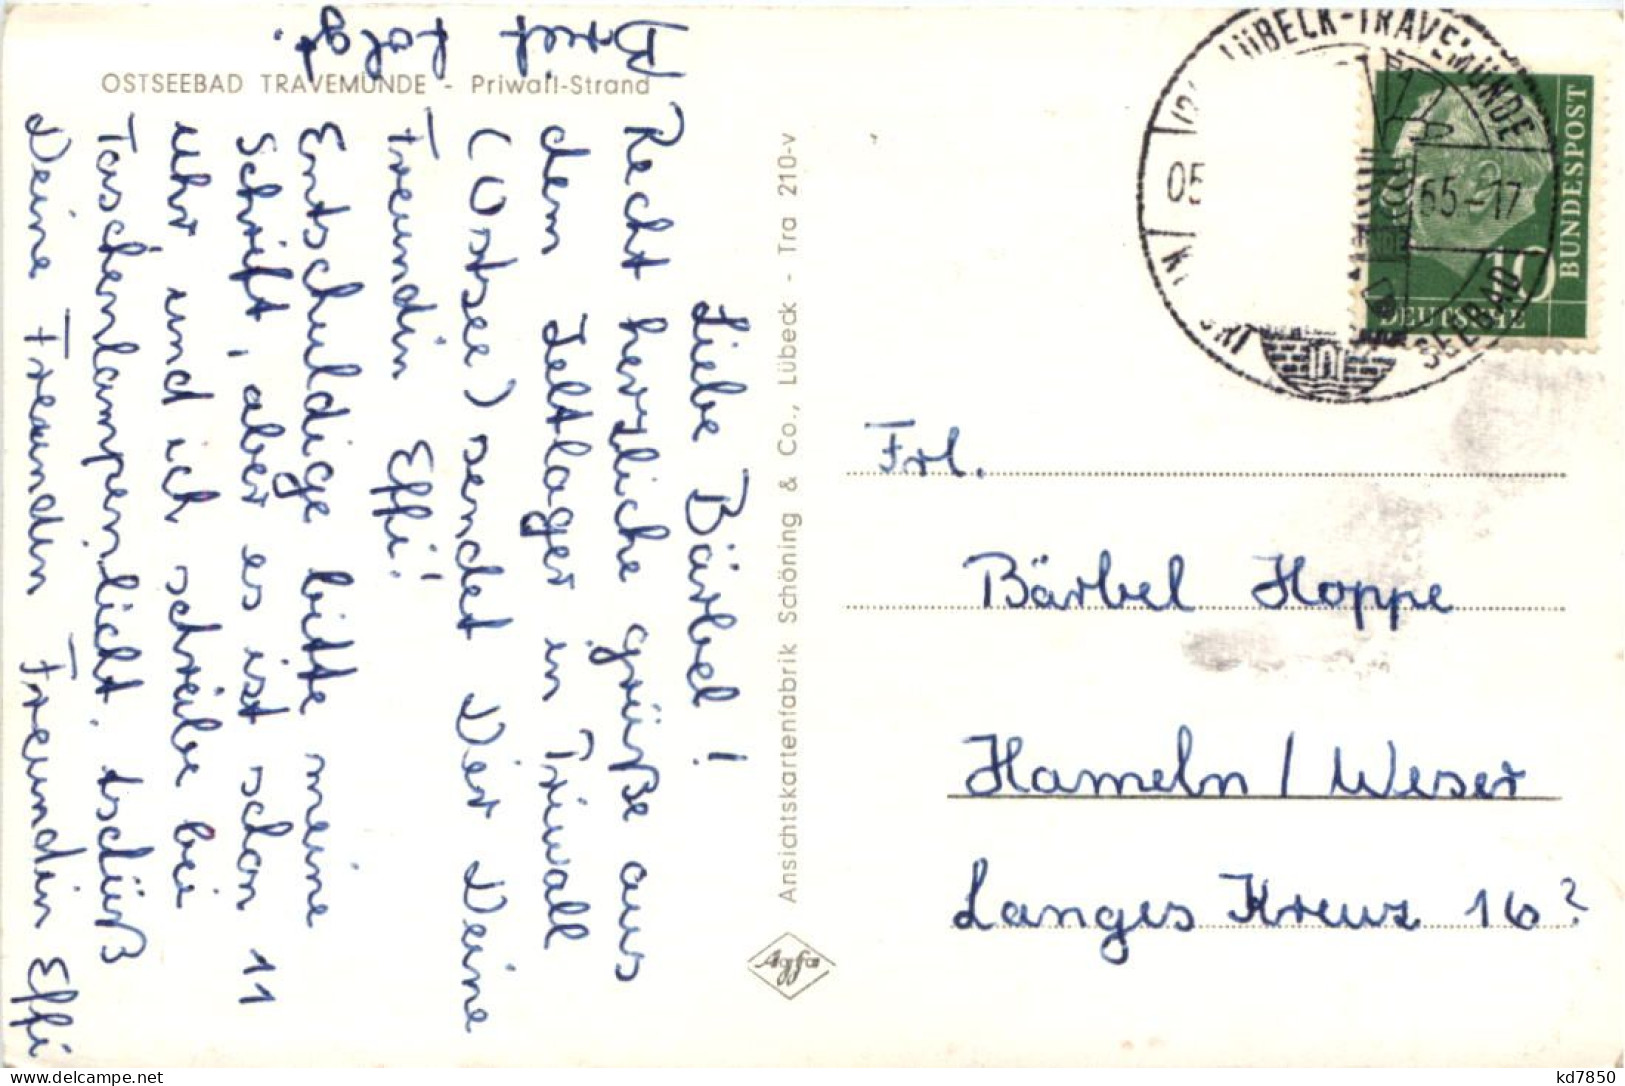 OSTSEEBAD TRAVEMÜNDE - Priwall-Strand
Liebe Bärbel!
Recht herzliche grüße aus
dem Zeltlager in Priwall
(Ostsee) sendet Dir Deine
Freundin Effi!
Entschuldige bitte meine
Schrift, aber es ist schon 11
Uhr und ich schreibe bei
Taschenlampenlicht. tschüß
Deine Freundin Freundin Effi
Brief folgt.
Ansichtskartenfabrik Schöning & Co., Lübeck - Tra 210-v
Agfa
LÜBECK-TRAVEMÜNDE
05
65-17
SEEBAD
BUNDESPOST
DEUTSCHE
10
Frl.
Bärbel Hoppe
Hameln / Weser
Langes Kreuz 16?
kd7850